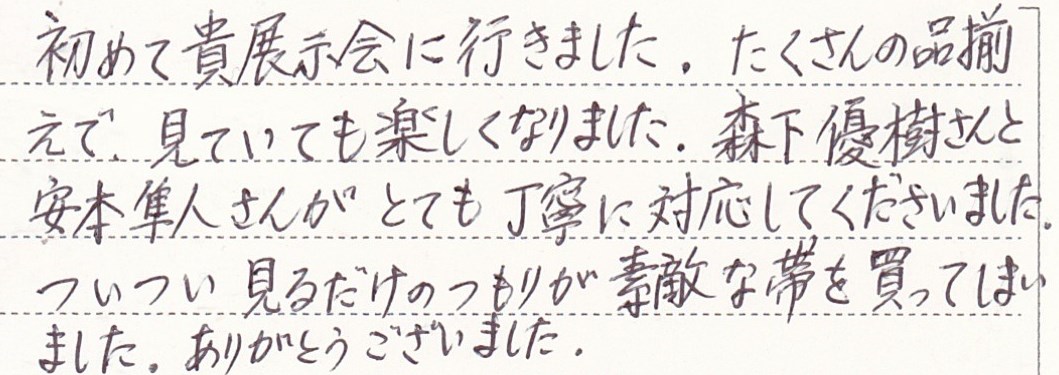 初めて貴展示会に行きました。たくさんの品揃
えで、見ていても楽しくなりました。森下優樹さんと
安本隼人さんがとても丁寧に対応してくださいました。
ついつい見るだけのつもりが素敵な帯を買ってしまい
ました。ありがとうございました。